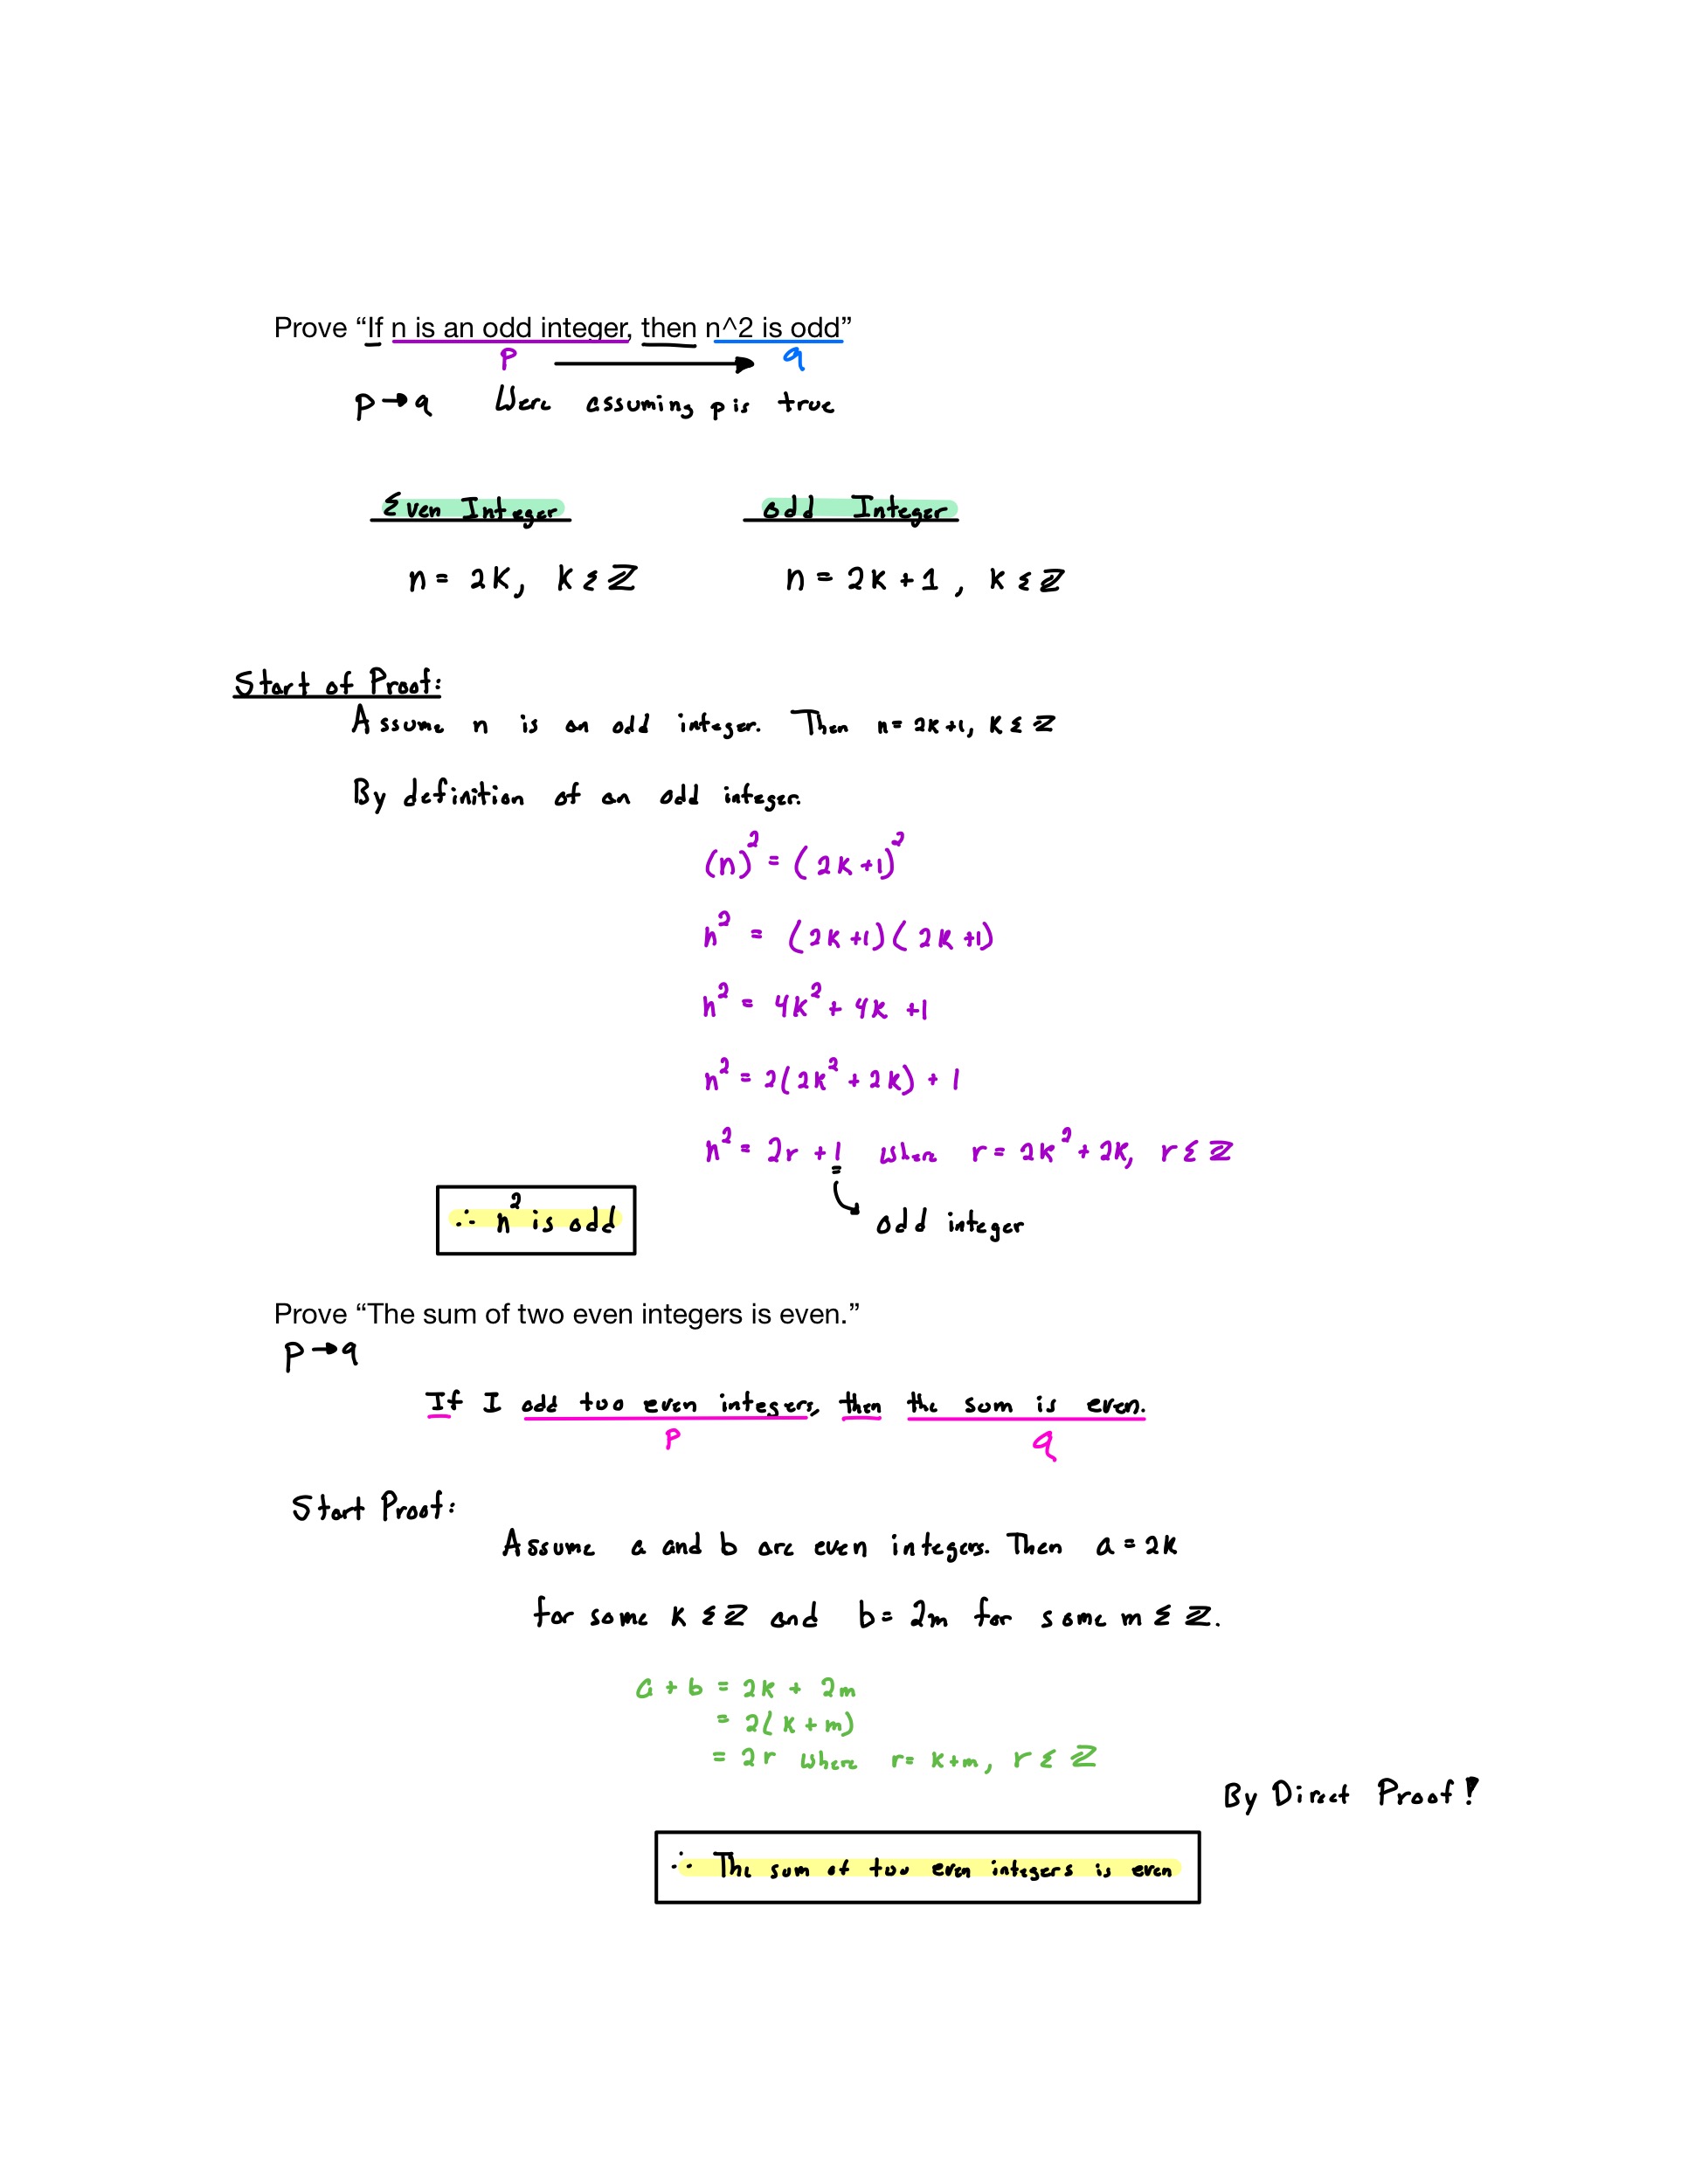 Prove “If n is an odd integer, then n^2 is odd”
p → q
p → q Were assuming p is true
Even Integer odd Integer
n = 2k, k ∈ ℤ n = 2k + 1, k ∈ ℤ
Start of Proof:
Assume n is an odd integer. Then n = 2k+1, k ∈ ℤ
By definition of an odd integer.
(n)² = (2k+1)²
n² = (2k+1)(2k+1)
n² = 4k² + 4k +1
n² = 2(2k² + 2k) + 1
n² = 2r + 1 where r = 2k² + 2k, r ∈ ℤ
∴ n² is odd
odd integer
Prove “The sum of two even integers is even.”
p → q
If I add two even integers, then the sum is even.
p q
Start Proof:
Assume a and b are even integers. Then a = 2k
for some k ∈ ℤ and b = 2m for some m ∈ ℤ.
a + b = 2k + 2m
= 2(k + m)
= 2r where r = k+m, r ∈ ℤ
By Direct Proof!
∴ The sum of two even integers is even